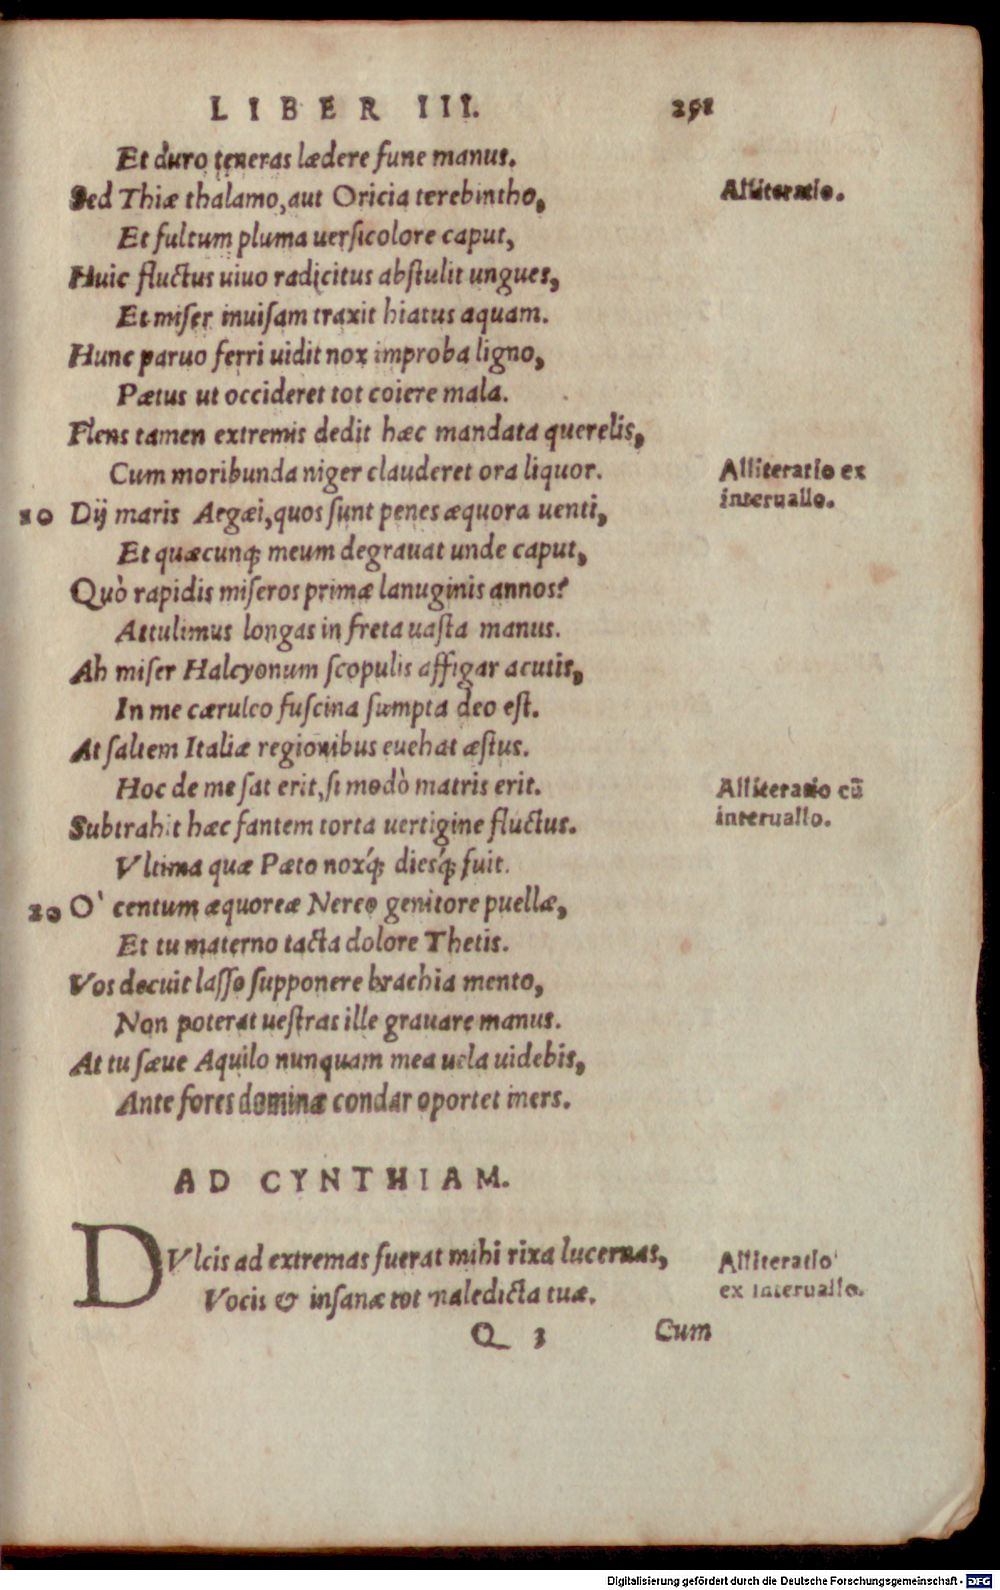 LIBER III. 251
Et duro teneras lædere fune manus.
Sed Thiæ thalamo, aut Oricia terebintho, Alliteratio.
Et fultum pluma uerſicolore caput,
Huic fluctus uiuo radicitus abſtulit ungues,
Et miſer inuiſam traxit hiatus aquam.
Hunc paruo ferri uidit nox improba ligno,
Pætus ut occideret tot coiere mala.
Flens tamen extremis dedit hæc mandata querelis,
Cum moribunda niger clauderet ora liquor. Alliteratio ex
interuallo.
10 Dij maris Aegæi, quos ſunt penes æquora uenti,
Et quæcunq; meum degrauat unde caput,
Quò rapidis miſeros primæ lanuginis annos?
Attulimus longas in freta uaſta manus.
Ah miſer Halcyonum ſcopulis affigar acutis,
In me cæruleo fuſcina ſumpta deo eſt.
At ſaltem Italiæ regionibus euehat æſtus.
Hoc de me ſat erit, ſi modò matris erit. Alliteratio cū
interuallo.
Subtrahit hæc fantem torta uertigine fluctus.
Vltima quæ Pæto noxq́; diesq́; fuit.
20 O' centum æquoreæ Nereo genitore puellæ,
Et tu materno tacta dolore Thetis.
Vos decuit laſſo ſupponere brachia mento,
Non poterat ueſtras ille grauare manus.
At tu ſæue Aquilo nunquam mea uela uidebis,
Ante fores dominæ condar oportet iners.
AD CYNTHIAM.
DVlcis ad extremas fuerat mihi rixa lucernas, Alliteratio
Vocis & inſanæ tot maledicta tuæ. ex interuallo.
Q 3 Cum
Digitalisierung gefördert durch die Deutsche Forschungsgemeinschaft - DFG